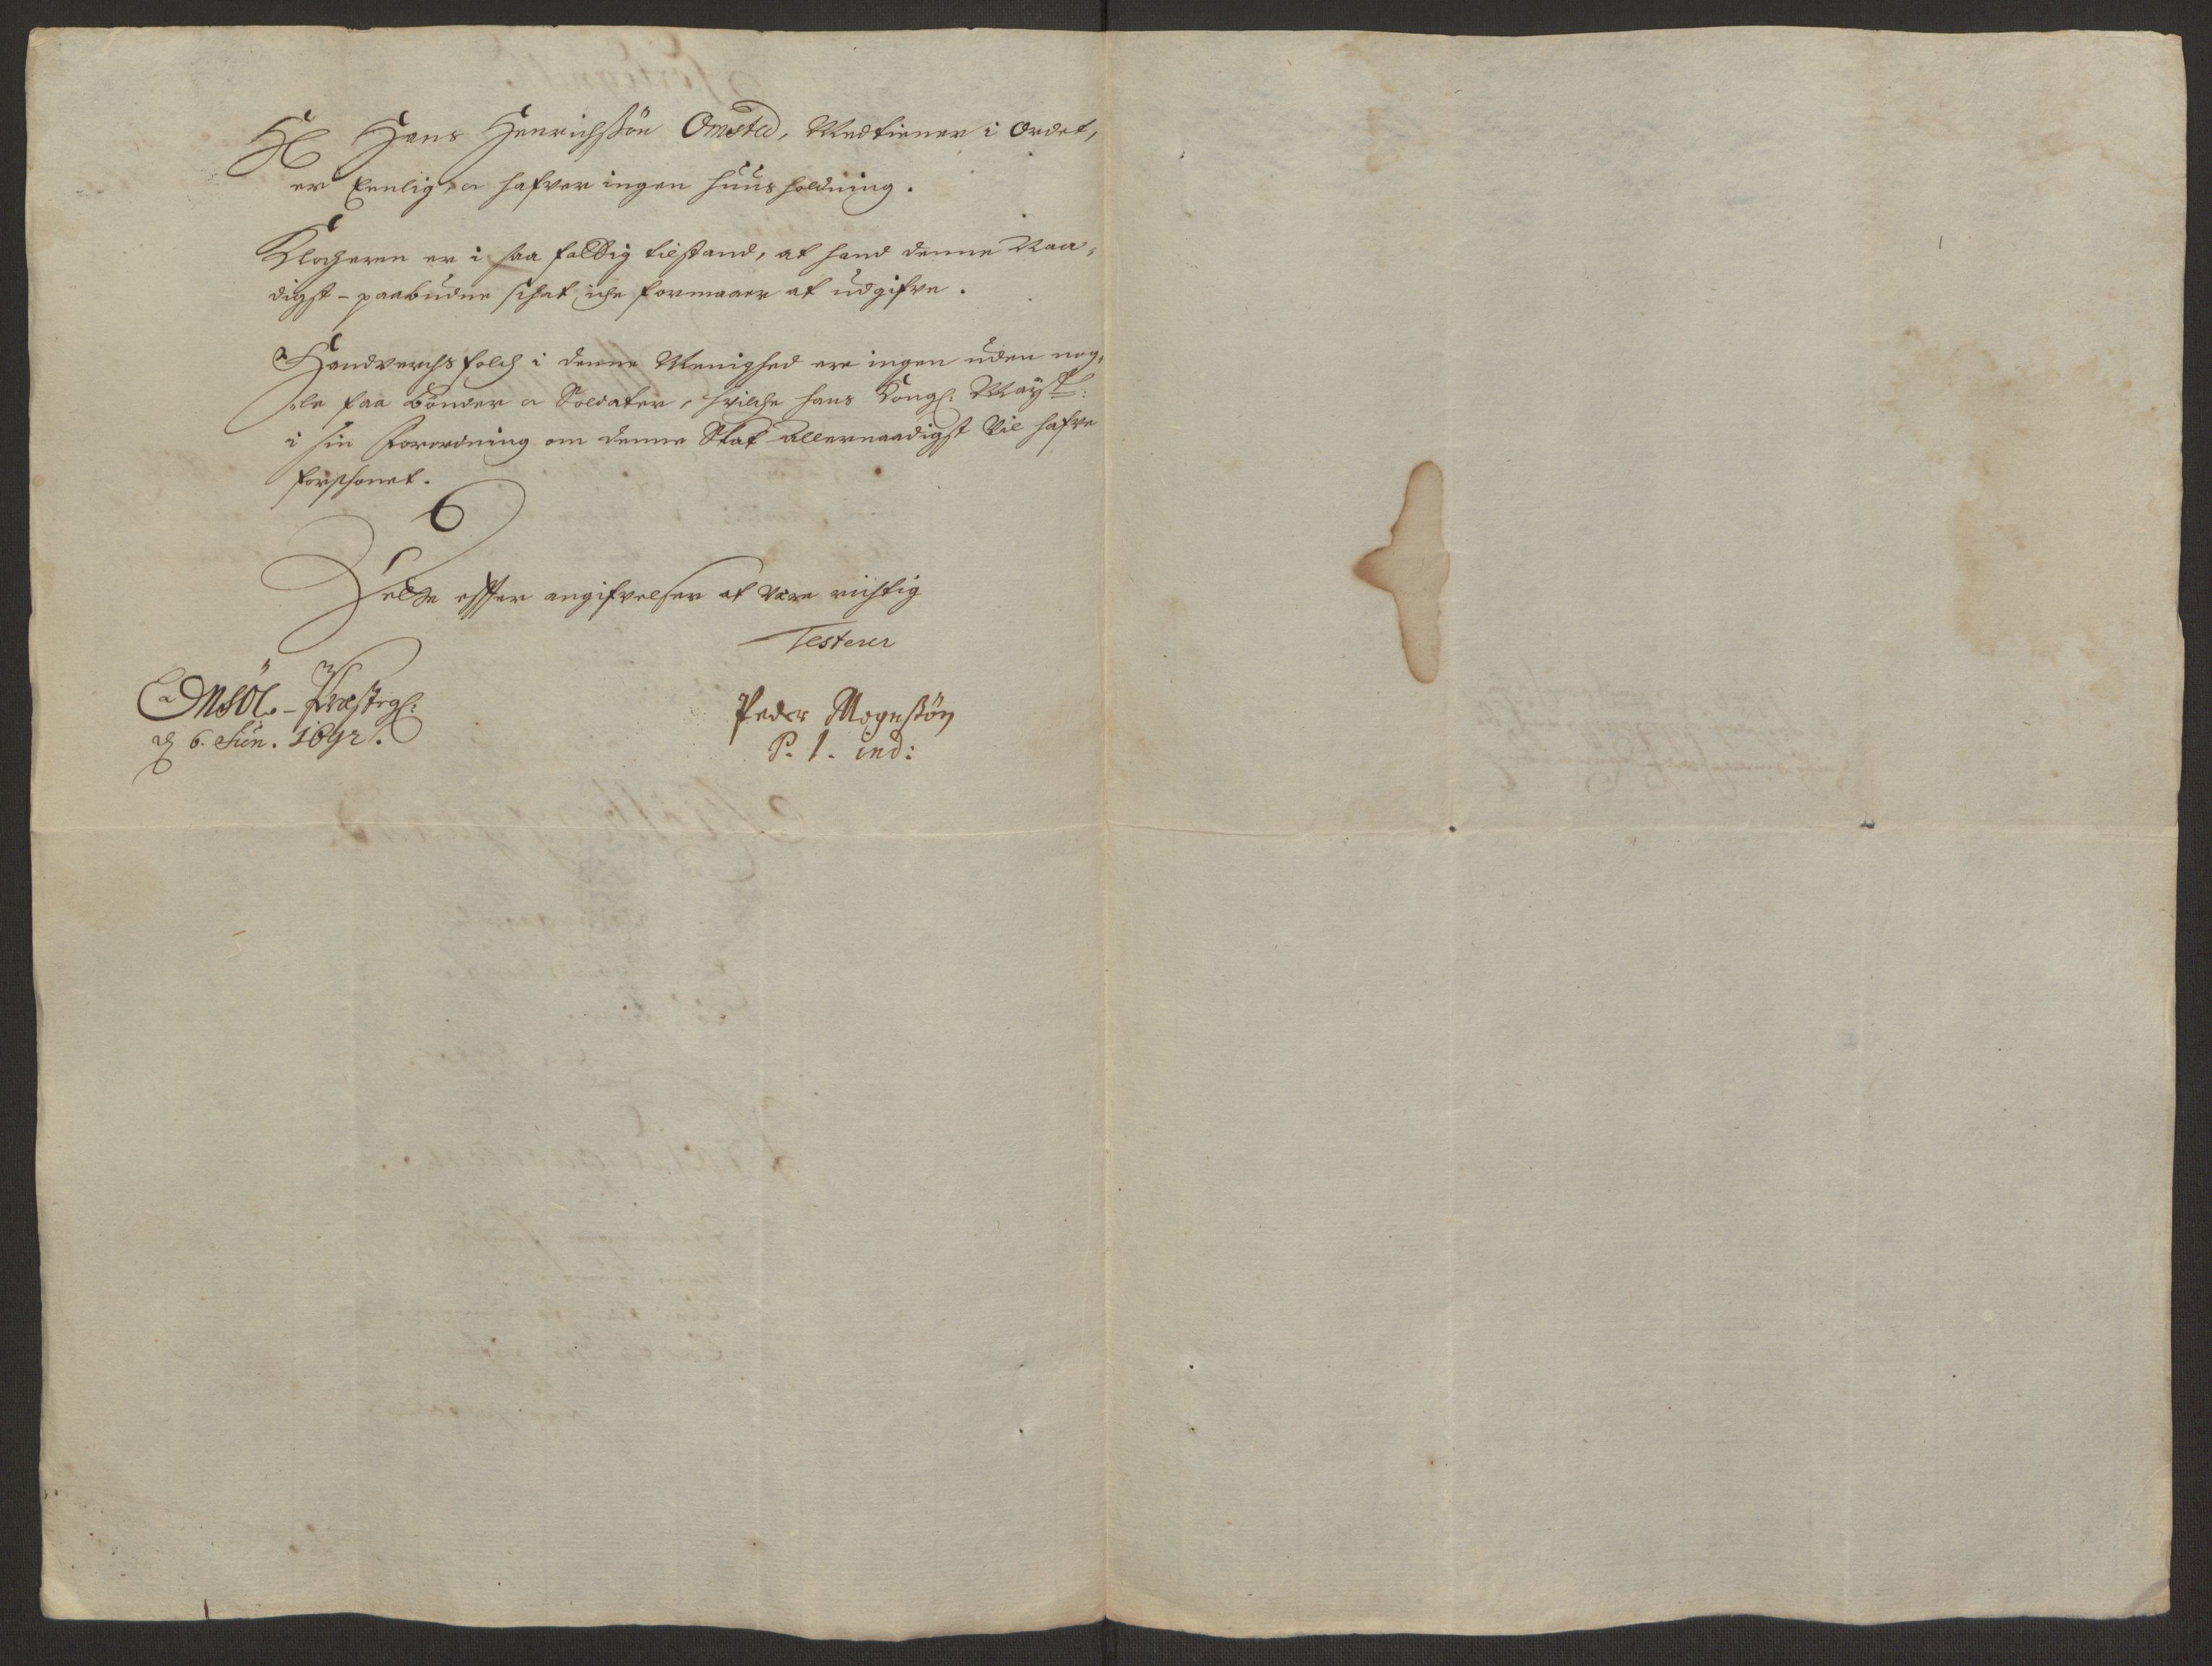 H Hans Henrichsøn Omsted, Medtiener i Ordet,
er Eenlig, oc hafver ingen huusholdning.
Klocheren er i saa fattig tilstand, at hand denne Naa-
digst-paabudne schat iche formaaer at udgifve.
Handverchs folch i denne Menighed ere ingen uden nog-
le faa bønder oc Soldater, hvilche hans Kongl: Mayst:
i sin Forordning om denne Skat allernaadigst Vil hafve
forschonet.
Dette efter angifvelser at være richtig
Testerer
Onsøe-Præstegl: Peder Mognsøn
d 6. Jun. 1692. P. l. ind: